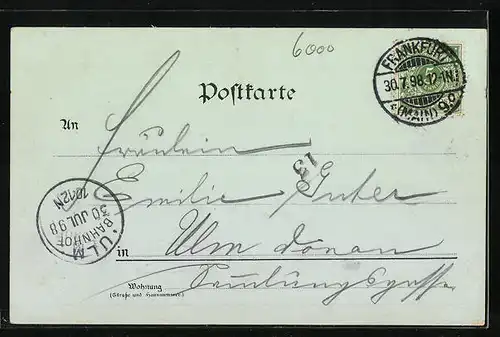 6000
FRANKFURT
30.7.98.12-1N.
(MAIN) 9.o.
5
Postkarte
An
Fräulein
13
Emilie
in Ulm Donau
ULM
BAHNHOF
30 JUL 98
10-12N
Wohnung
(Straße und Hausnummer)